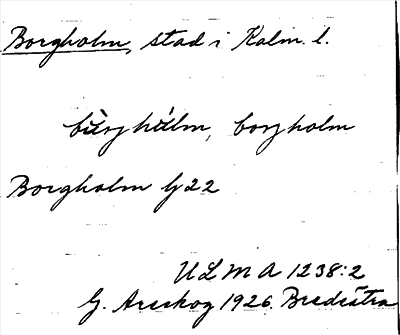 Borgholm, stad i Kalm. l.
bùrjhúlm, borjholm
Borgholm lj 22
ULMA 1238:2
G. Areskog 1926. Bredsätra